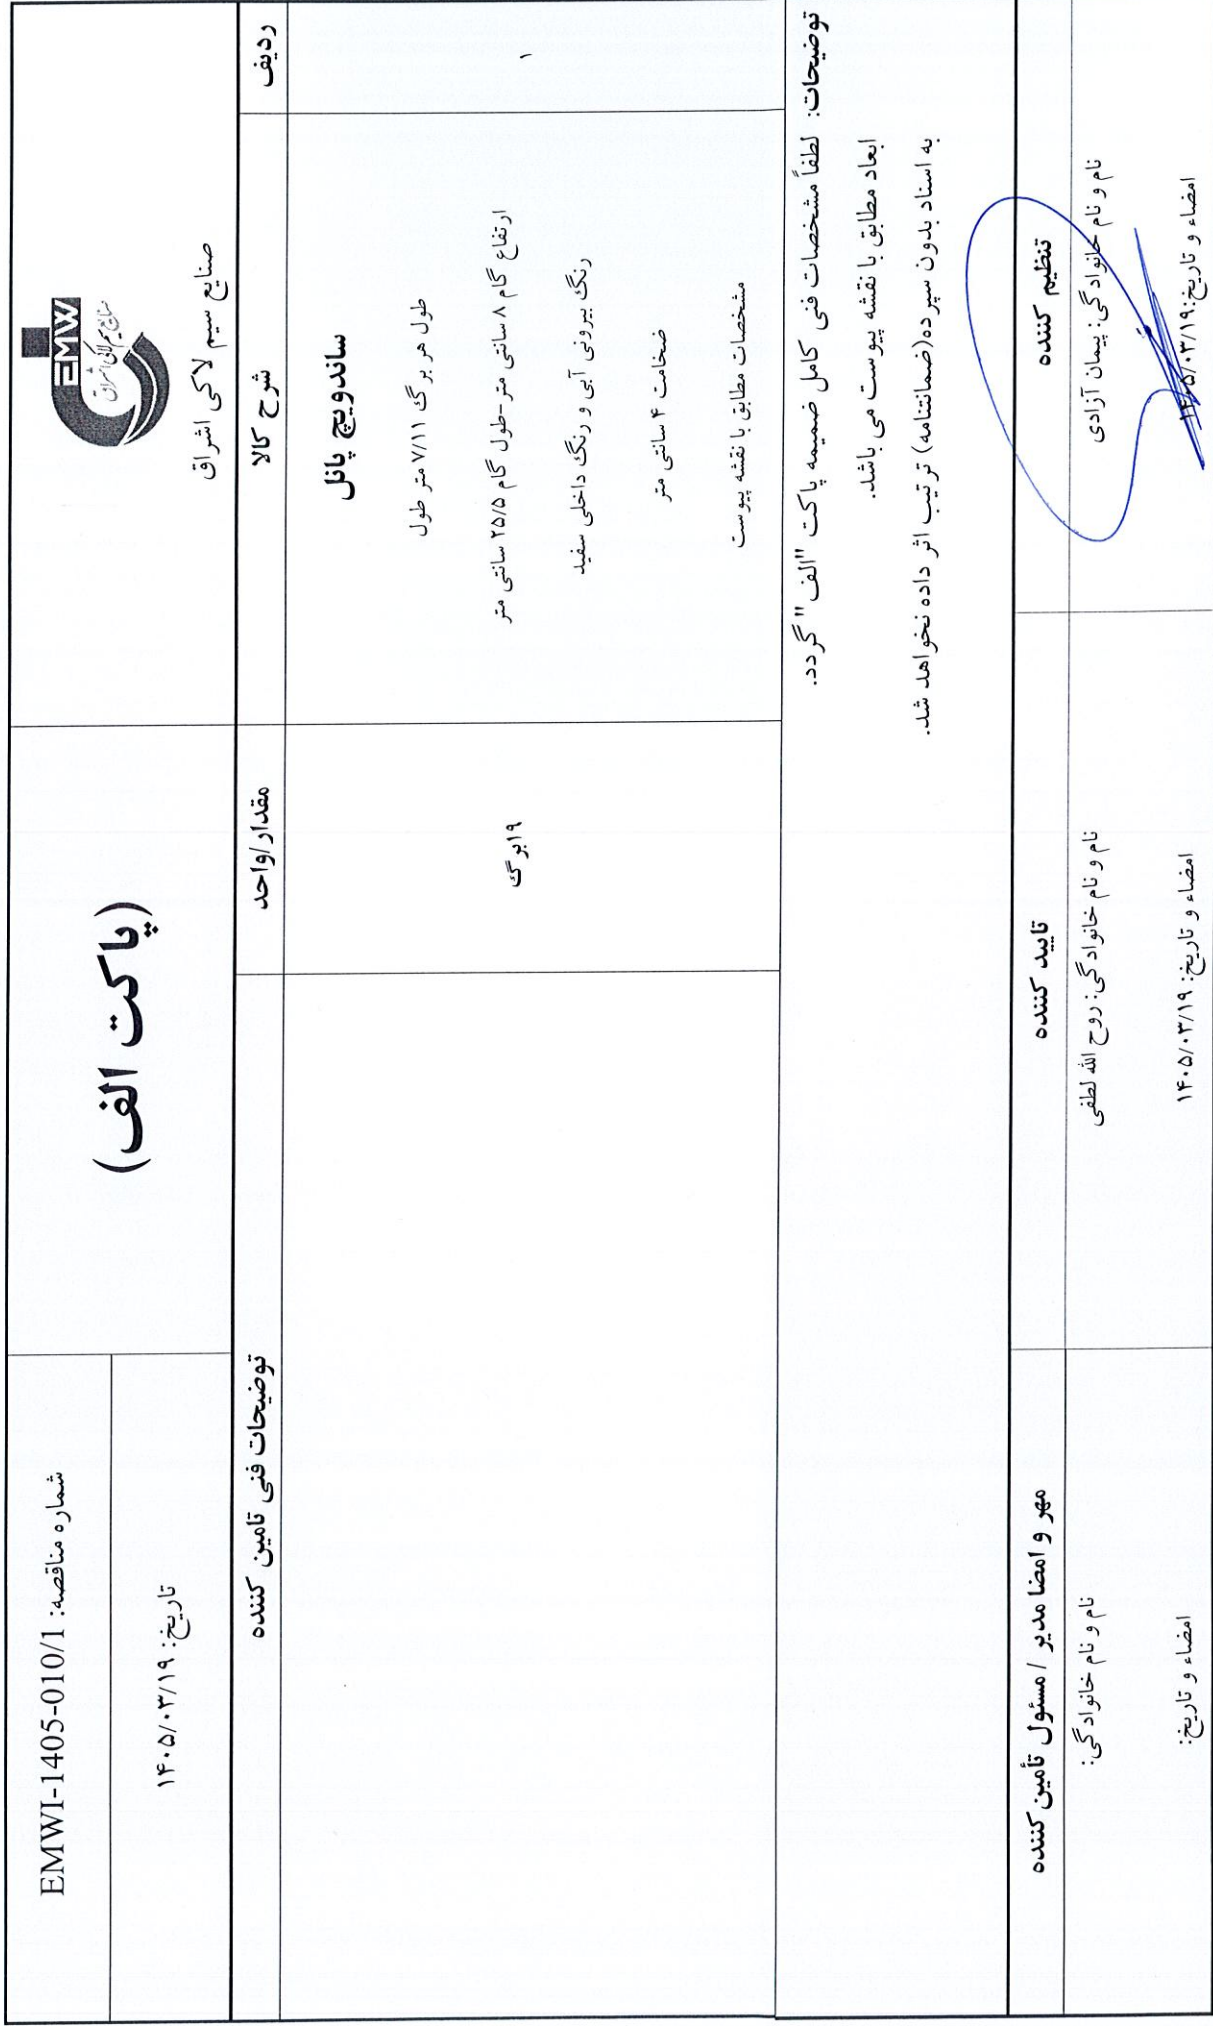 EMW
صنایع سیم لاکی اشراق
صنایع سیم لاکی اشراق
(پاکت الف)
شماره مناقصه: EMWI-1405-010/1
تاریخ: ۱۴۰۵/۰۳/۱۹
ردیف
شرح کالا
مقدار/واحد
توضیحات فنی تامین کننده
۱
ساندویچ پانل
طول هر برگ ۷/۱۱ متر طول
ارتفاع گام ۸ سانتی متر-طول گام ۲۵/۵ سانتی متر
رنگ بیرونی آبی و رنگ داخلی سفید
ضخامت ۴ سانتی متر
مشخصات مطابق با نقشه پیوست
۱۹برگ
توضیحات: لطفاً مشخصات فنی کامل ضمیمه پاکت "الف" گردد.
ابعاد مطابق با نقشه پیوست می باشد.
به اسناد بدون سپرده(ضمانتنامه) ترتیب اثر داده نخواهد شد.
تنظیم کننده
تایید کننده
مهر و امضا مدیر / مسئول تأمین کننده
نام و نام خانوادگی: پیمان آزادی
نام و نام خانوادگی: روح الله لطفی
نام و نام خانوادگی:
امضاء و تاریخ: ۱۴۰۵/۰۳/۱۹
امضاء و تاریخ: ۱۴۰۵/۰۳/۱۹
امضاء و تاریخ: